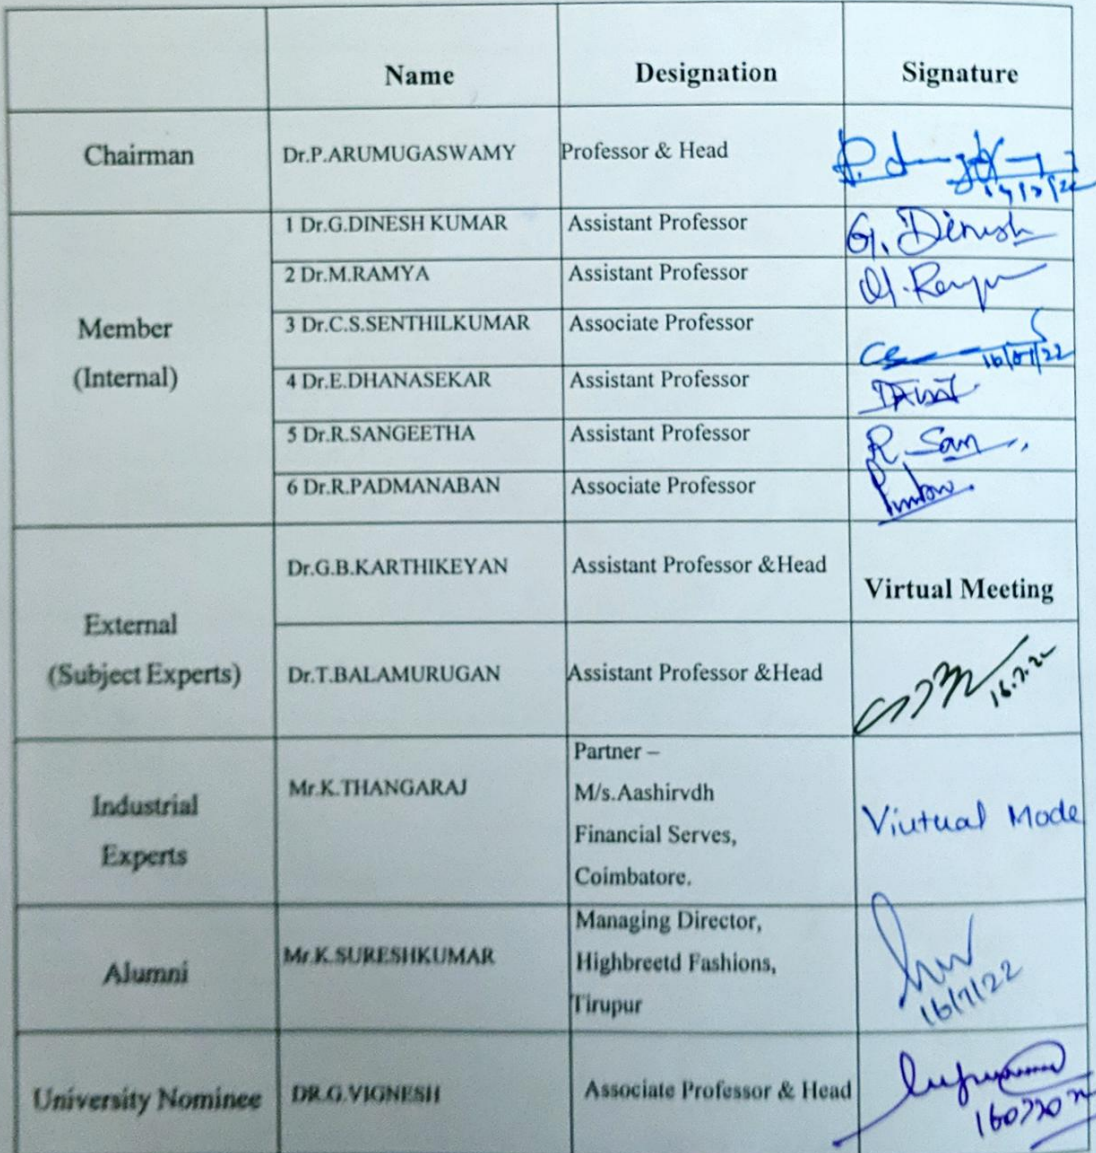 Name Designation Signature
Chairman Dr.P.ARUMUGASWAMY Professor & Head
1 Dr.G.DINESH KUMAR Assistant Professor G. Dinesh
2 Dr.M.RAMYA Assistant Professor
Member
(Internal)
3 Dr.C.S.SENTHILKUMAR Associate Professor
16/07/22
4 Dr.E.DHANASEKAR Assistant Professor
5 Dr.R.SANGEETHA Assistant Professor R. San
6 Dr.R.PADMANABAN Associate Professor
External
(Subject Experts)
Dr.G.B.KARTHIKEYAN Assistant Professor &Head Virtual Meeting
Dr.T.BALAMURUGAN Assistant Professor &Head
16.7.22
Industrial
Experts
Mr.K.THANGARAJ
Partner –
M/s.Aashirvdh
Financial Serves,
Coimbatore.
Viutual Mode
Alumni
Mr.K.SURESHKUMAR
Managing Director,
Highbreetd Fashions,
Tirupur
16/7/22
University Nominee DR.G.VIGNESH Associate Professor & Head